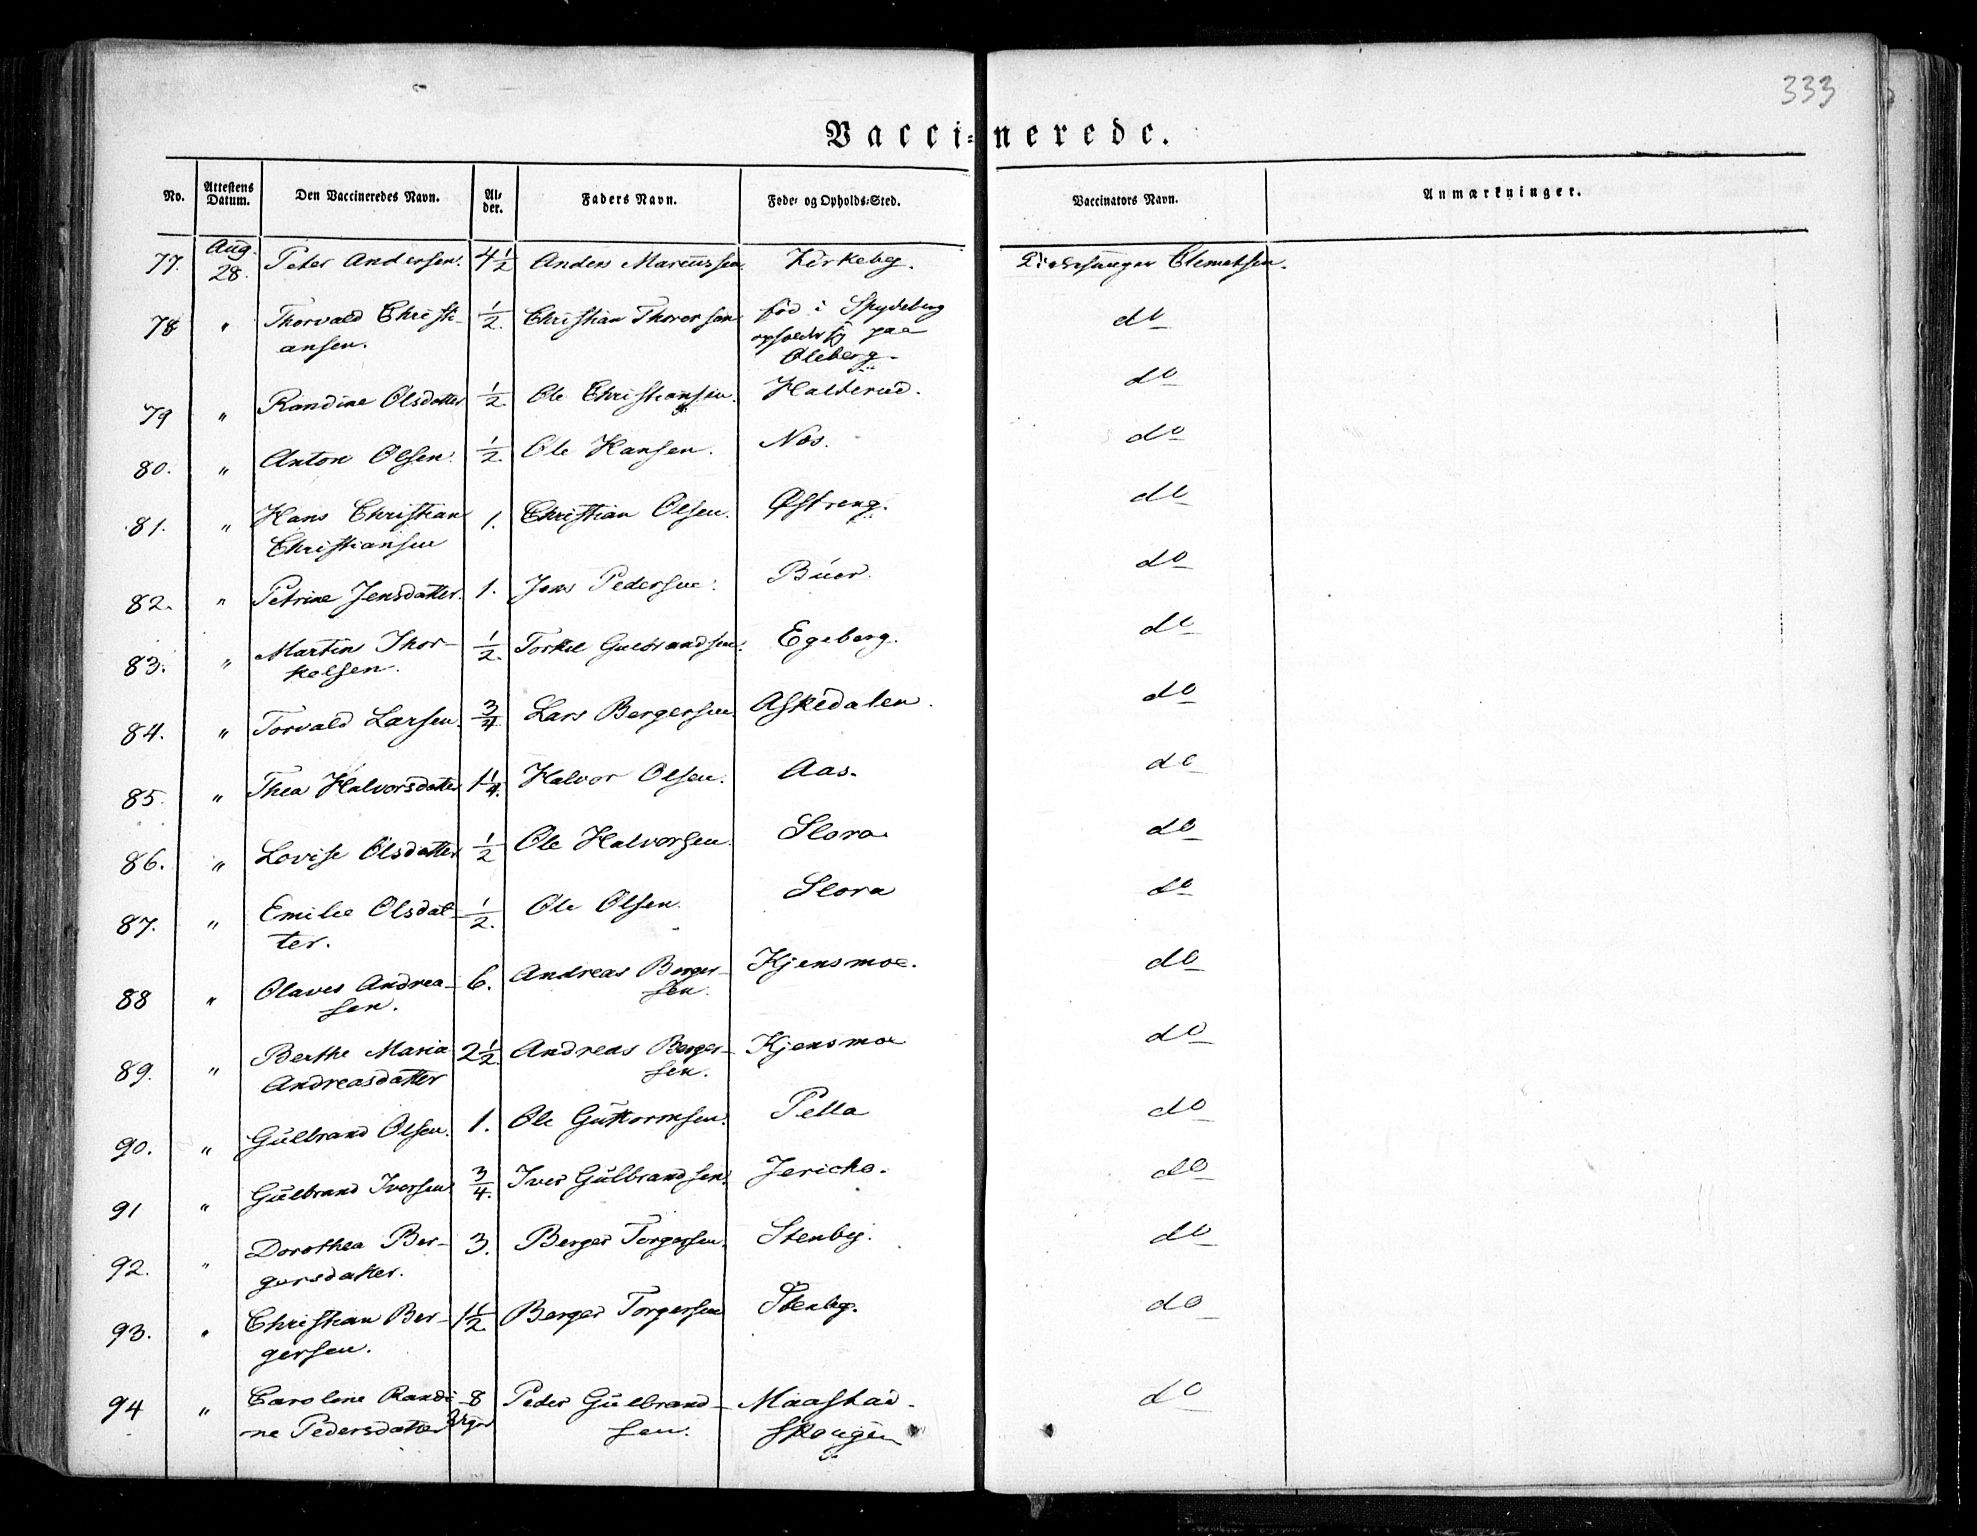 333
Vacci-nerede.
No. Attestens Datum. Den Vaccineredes Navn. Al-der. Faders Navn. Føde- og Opholds-Sted. Vaccinators Navn. Anmærkninger.
77. Aug. 28. Peter Andersen. 4 1/2 Anders Marcussen. Kirkeby. Kirkesanger Clemetsen.
78 " Thorvald Christi- 1/2. Christian Thorersen fød i Spydeberg do
ansen. opholder sig paa
Øleberg.
79 " Randine Olsdatter 1/2. Ole Christiansen. Halderud. do
80. " Anton Olsen. 1/2. Ole Hansen. Næs. do
81. " Hans Christian 1. Christian Olsen. Østreng. do
Christiansen
82. " Petrine Jensdatter. 1. Jens Pedersen. Buer. do
83. " Martin Thor- 1/2. Torkel Gulbrandsen. Egeberg. do
kelsen.
84. " Torvald Larsen 3/4. Lars Bergersen. Askedalen. do
85. " Thea Halvorsdatter 1 1/4. Halvor Olsen. Aas. do
86. " Lovise Olsdatter 1/2 Ole Halvorsen. Slora. do
87. " Emilie Olsdat- 1/2. Ole Olsen. Slora do
ter.
88 " Olaves Andrea- 6. Andreas Berger- Kjensmoe. do
sen. sen.
89. " Berthe Maria 2 1/2. Andreas Berger- Kjensmoe do
Andreasdatter sen.
90. " Gulbrand Olsen. 1. Ole Guttormsen. Pella do
91 " Gulbrand Iversen 3/4. Iver Gulbrandsen. Jericho. do
92. " Dorothea Ber- 3. Berger Torgersen. Stenby. do
gersdatter.
93. " Christian Ber- 1 1/2 Berger Torgersen Stenby. do
gersen.
94 " Caroline Randi- 8 Peder Gulbrand- Maastad- do
ne Pedersdatter Uger sen. skougen